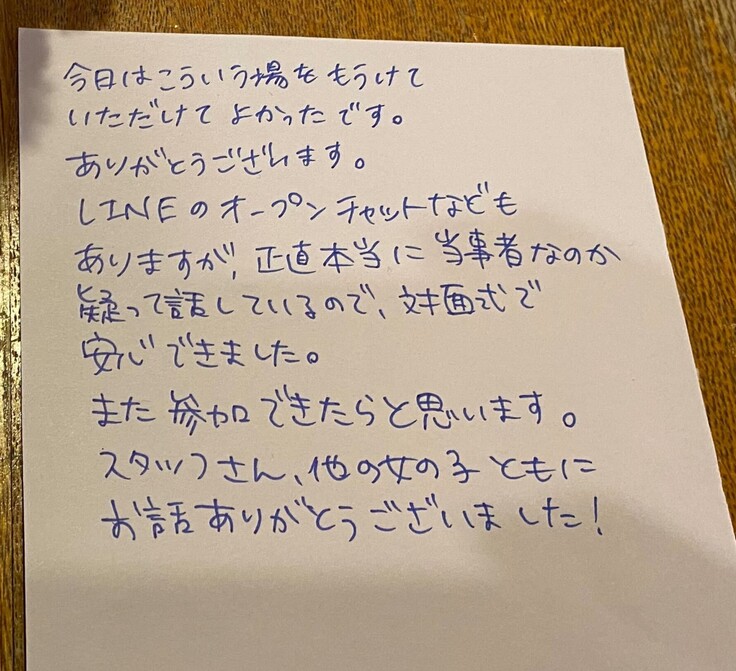 今日はこういう場をもうけて
いただけてよかったです。
ありがとうございます。
LINEのオープンチャットなども
ありますが、正直本当に当事者なのか
疑って話しているので、対面式で
安心できました。
また参加できたらと思います。
スタッフさん、他の女の子ともに
お話ありがとうございました!